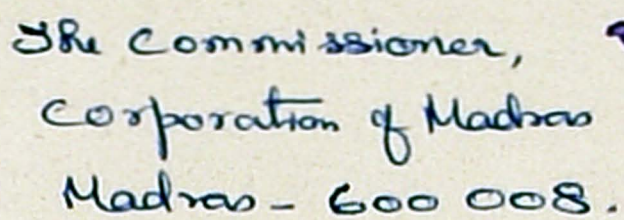 The Commissioner,
Corporation of Madras
Madras - 600 008.